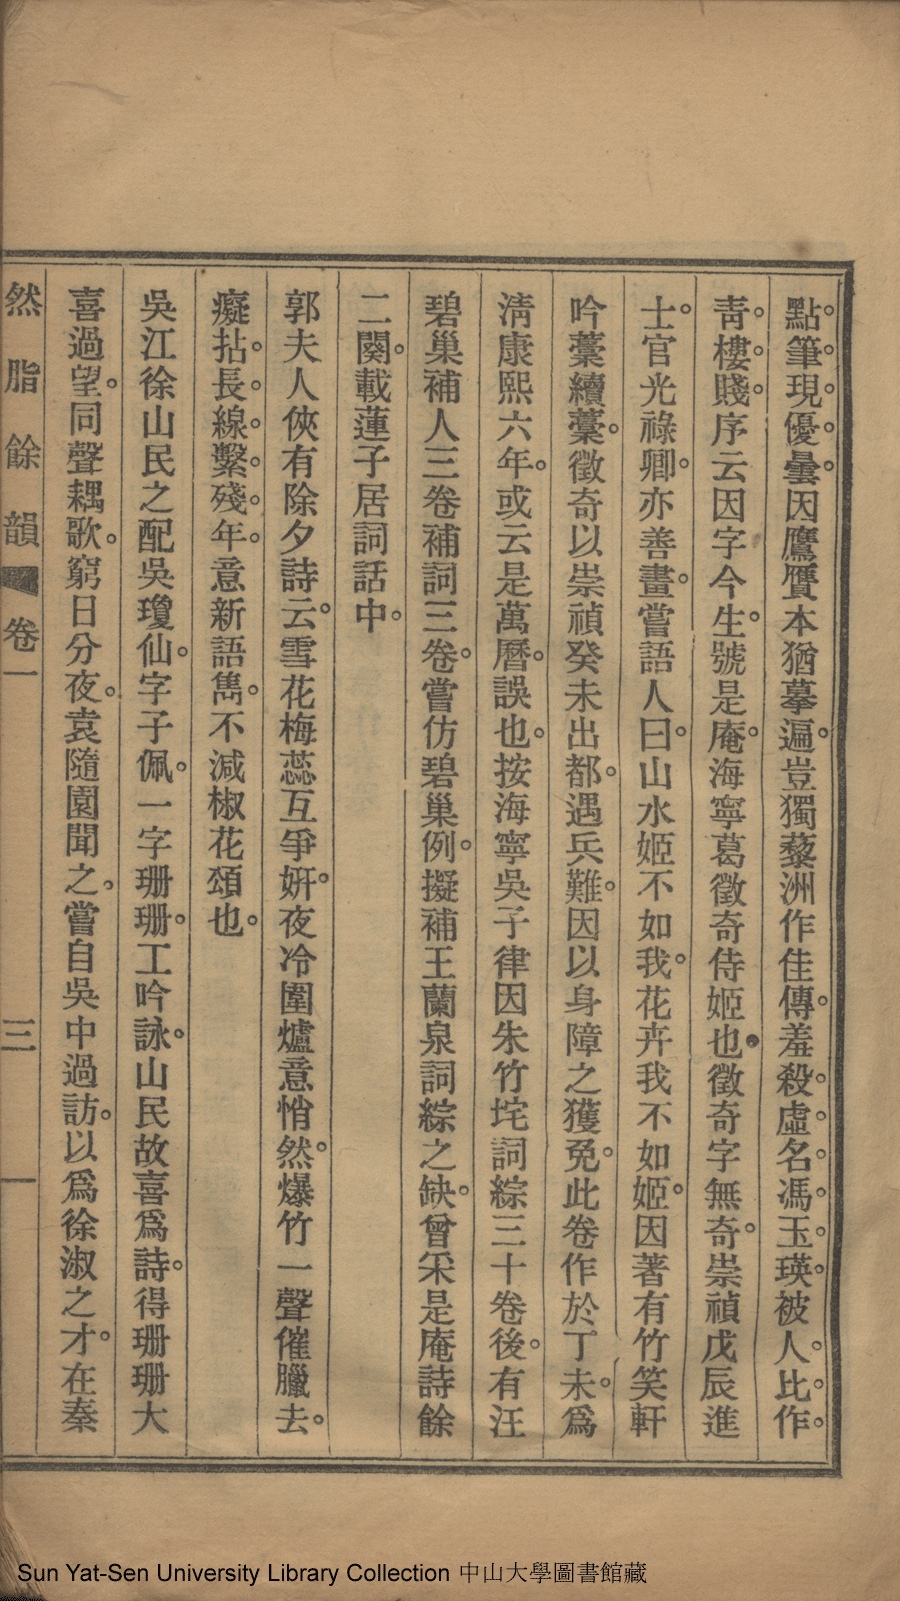 點筆現優曇因鷹贋本猶摹遍豈獨藜洲作佳傳羞殺虛名馮玉瑛被人比作
靑樓賤序云因字今生號是庵海寧葛徵奇侍姬也徵奇字無奇崇禎戊辰進
士官光祿卿亦善畫嘗語人曰山水姬不如我花卉我不如姬因著有竹笑軒
吟藁續藁徵奇以崇禎癸未出都遇兵難因以身障之獲免此卷作於丁未爲
淸康熙六年或云是萬曆誤也按海寧吳子律因朱竹垞詞綜三十卷後有汪
碧巢補人三卷補詞三卷嘗仿碧巢例擬補王蘭泉詞綜之缺曾采是庵詩餘
二闋載蓮子居詞話中
郭夫人俠有除夕詩云雪花梅蕊互爭姸夜冷圍爐意悄然爆竹一聲催臘去
癡拈長線繫殘年意新語雋不減椒花頌也
吳江徐山民之配吳瓊仙字子佩一字珊珊工吟詠山民故喜爲詩得珊珊大
喜過望同聲耦歌窮日分夜袁隨園聞之嘗自吳中過訪以爲徐淑之才在秦
然脂餘韻 卷一 三 一
Sun Yat-Sen University Library Collection 中山大學圖書館藏